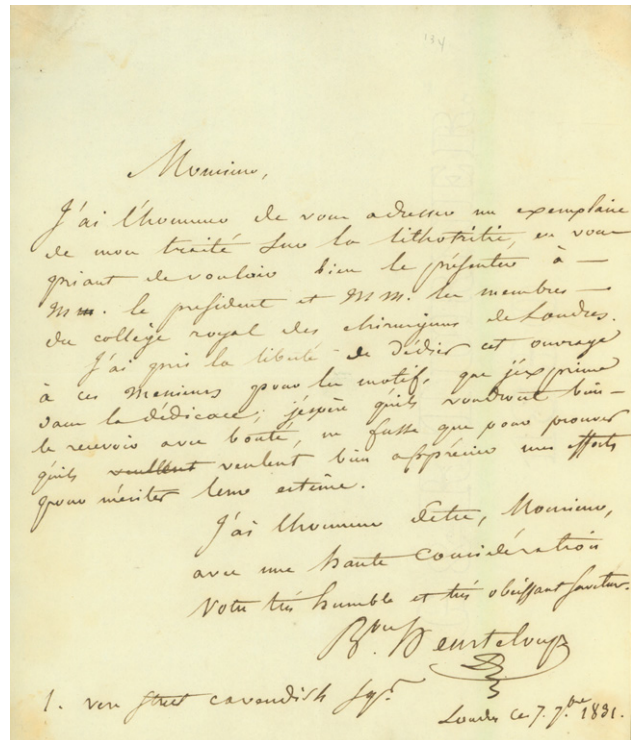 134
Monsieur,
J'ai l'honneur de vous adresser un exemplaire
de mon traité sur la lithotritie, en vous
priant de vouloir bien le présenter à —
MM. le président et MM. les membres —
du collège royal des chirurgiens de Londres.
J'ai pris la liberté de dédier cet ouvrage
à ces Messieurs pour les motifs, que j'exprime
dans la dédicace; j'espère qu'ils voudront bien —
le recevoir avec bonté, ne fusse que pour prouver
qu'ils veullent veulent bien apprécier mes efforts
pour mériter leur estime.
J'ai l'honneur d'être, Monsieur,
avec une haute Considération
Votre très humble et très obéissant serviteur.
Bon Heurteloup
1. vere street cavendish sqre
Londres ce 7. 7bre 1831.